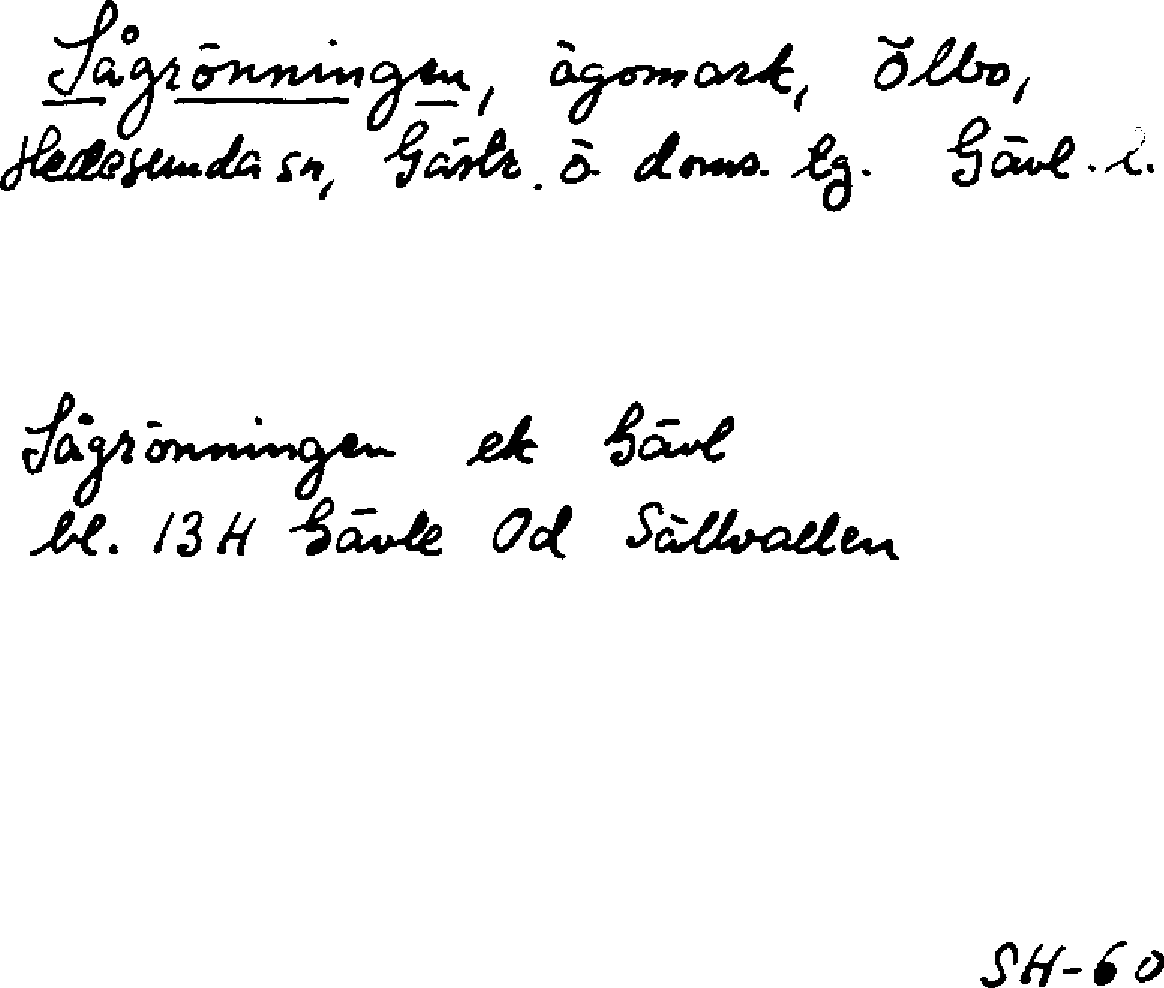 Sågrönningen, ägomark, Ölbo,
Hedesunda sn, Gästr. ö. doms. lg. Gävl. l.
Sågrönningen ek Gävl
bl. 13H Gävle Od Sällvallen
SH-60